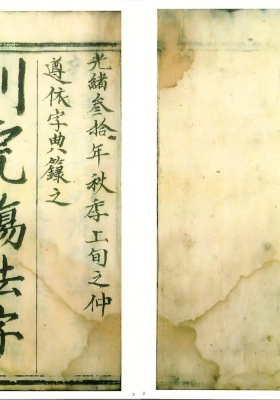 光緒叁拾年秋季上旬之仲
遵依字典籙之
法字